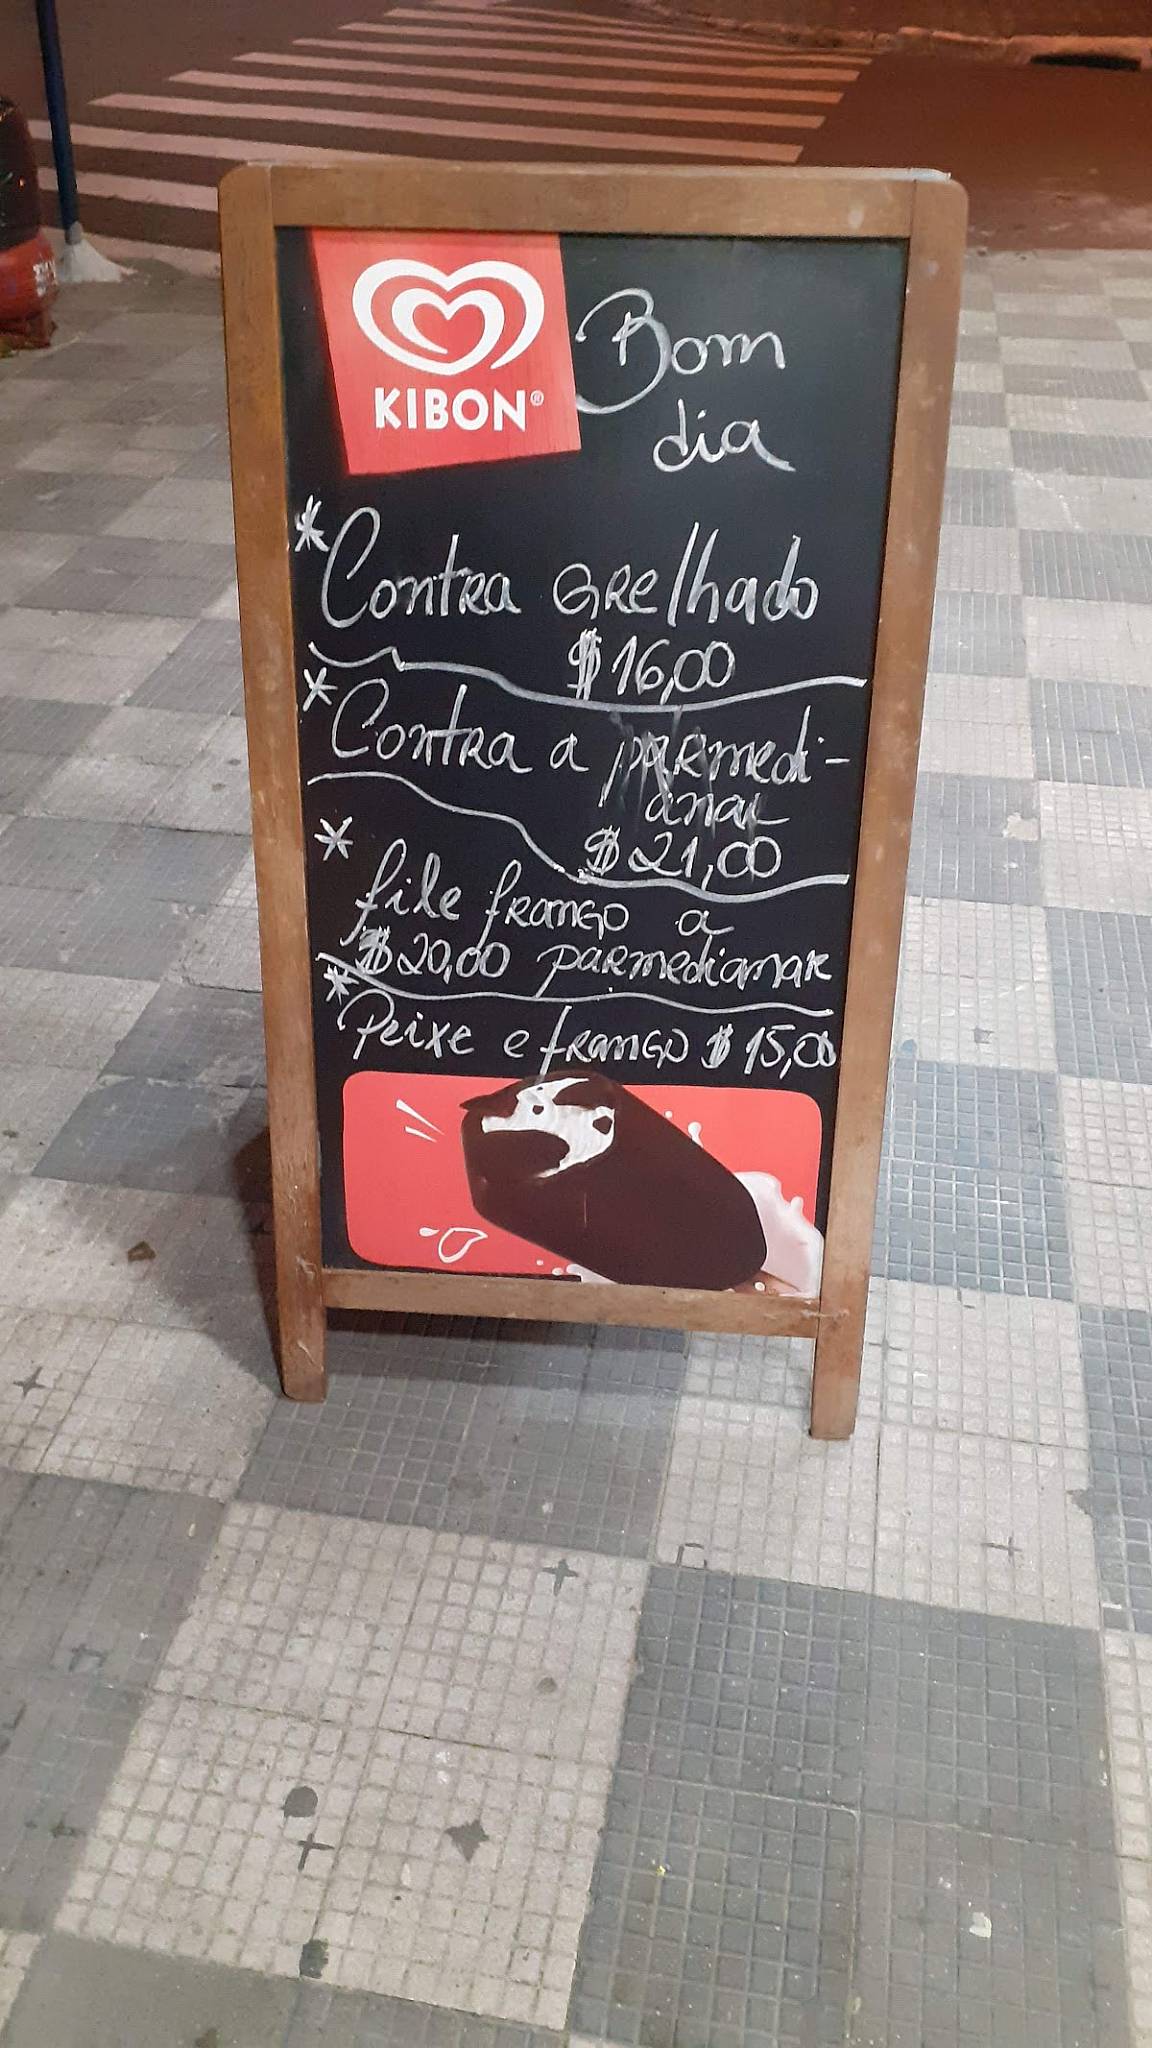 KIBON®
Bom
dia
* Contra GRelhado
$ 16,00
* Contra a parmedi-
anar
$ 21,00
* file frango a
$ 20,00 parmedianar
* Peixe e frango $ 15,00